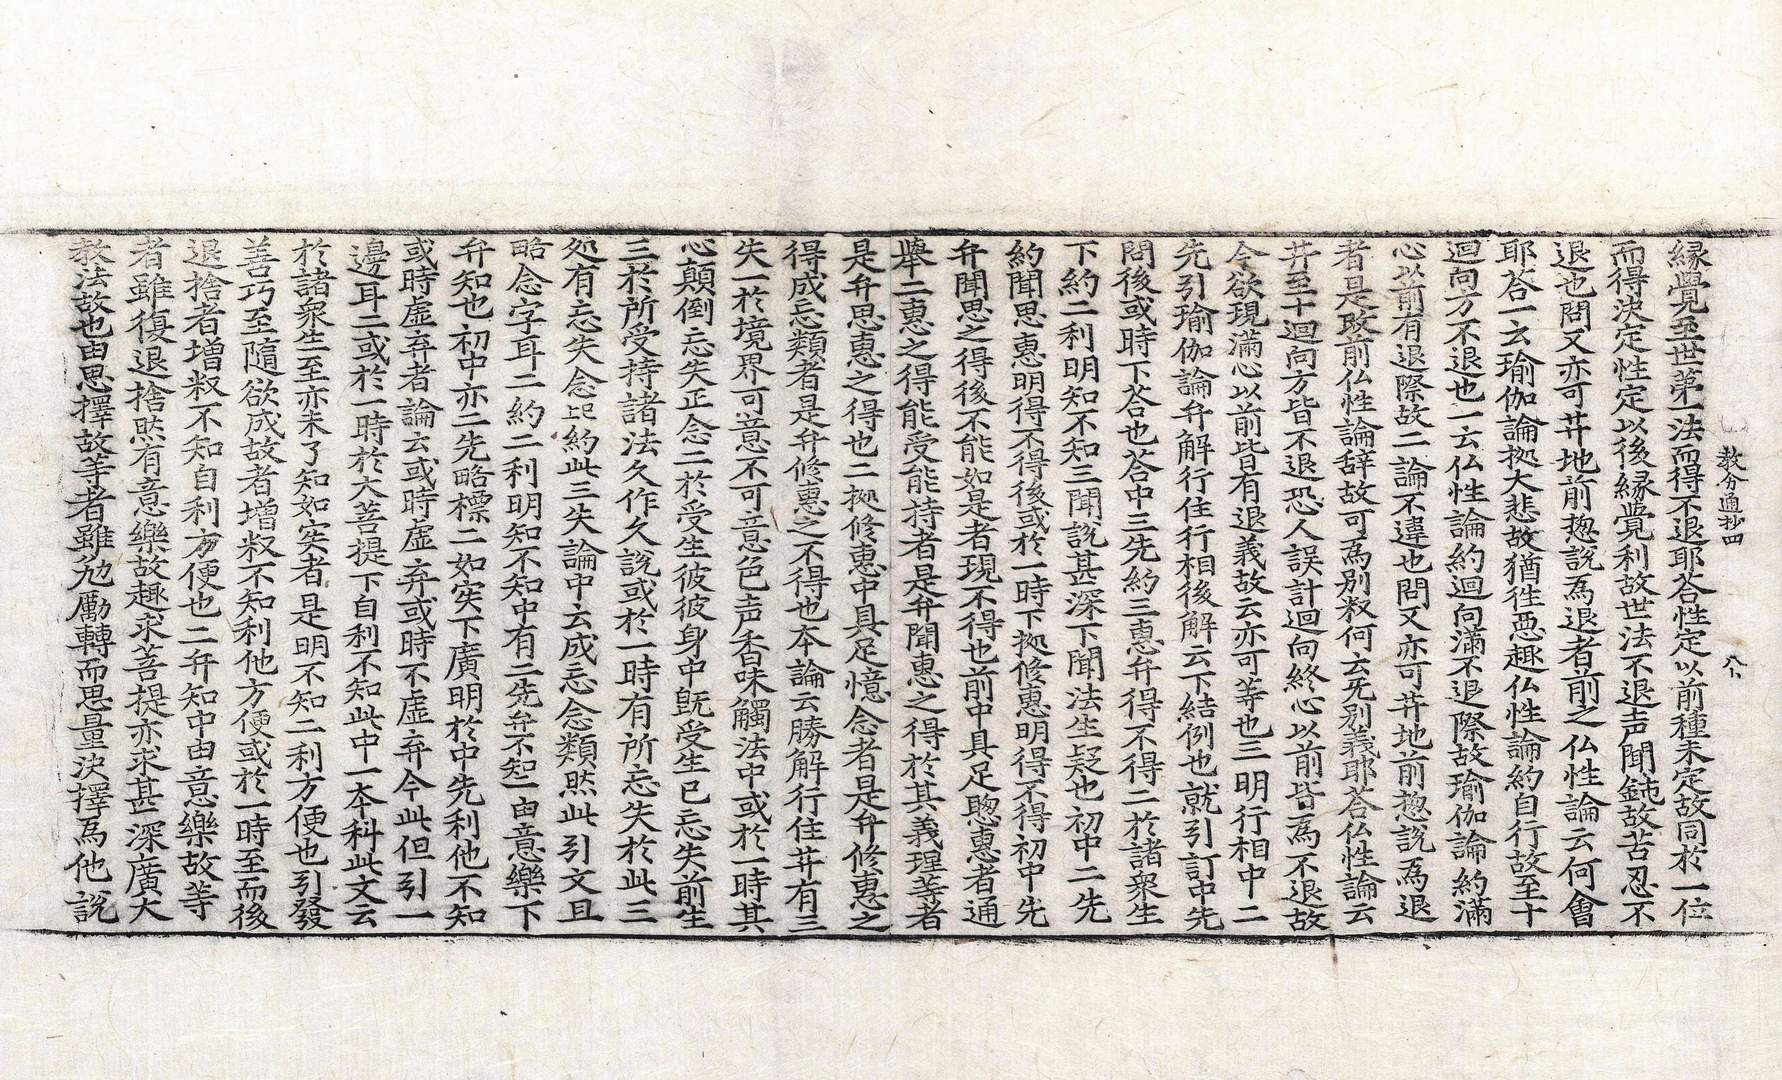 教分通抄四　八
縁覺至世第一法而得不退耶荅性定以前種未定故同於一位
而得決定性定以後縁覺利故世法不退声聞鈍故苦忍不
退也問又亦可井地前揔說為退者前之仏性論云何會
耶荅一云瑜伽論拠大悲故猶徃惡趣仏性論約自行故至十
迴向方不退也一云仏性論約迴向滿不退際故瑜伽論約滿
心以前有退際故二論不違也問又亦可井地前揔說為退
者是改前仏性論辞故可為別敎何云旡別義耶荅仏性論云
井至十迴向方皆不退恐人誤計迴向終心以前皆為不退故
今欲現滿心以前皆有退義故云亦可等也三明行相中二
先引瑜伽論弁解行住行相後解云下結例也就引訂中先
問後或時下荅也荅中三先約三惠弁得不得二於諸衆生
下約二利明知不知三聞說甚深下聞法生疑也初中二先
約聞思惠明得不得後或於一時下拠修惠明得不得初中先
弁聞思之得後不能如是者現不得也前中具足聦惠者通
舉二惠之得能受能持者是弁聞惠之得於其義理等者
是弁思惠之得也二拠修惠中具足憶念者是弁修惠之
得成忘類者是弁修惠之不得也本論云勝解行住井有三
失一於境界可意不可意色声香味觸法中或於一時其
心顛倒忘失正念二於受生彼彼身中旣受生已忘失前生
三於所受持諸法久作久說或於一時有所忘失於此三
処有忘失念記約此三失論中云成忘念類然此引文且
略念字耳二約二利明知不知中有二先弁不知二由意樂下
弁知也初中亦二先略標二如实下廣明於中先利他不知
或時虚弃者論云或時虚弃或時不虚弃今此但引一
邊耳二或於一時於大菩提下自利不知此中一本科此文云
於諸衆生至亦未了知如实者是明不知二利方便也引發
善巧至隨欲成故者增敎不知利他方便或於一時至而後
退捨者增敎不知自利方便也二弁知中由意樂故等
者雖復退捨然有意樂故趣求菩提亦求甚深廣大
敎法故也由思擇故等者雖勉勵轉而思量決擇為他說